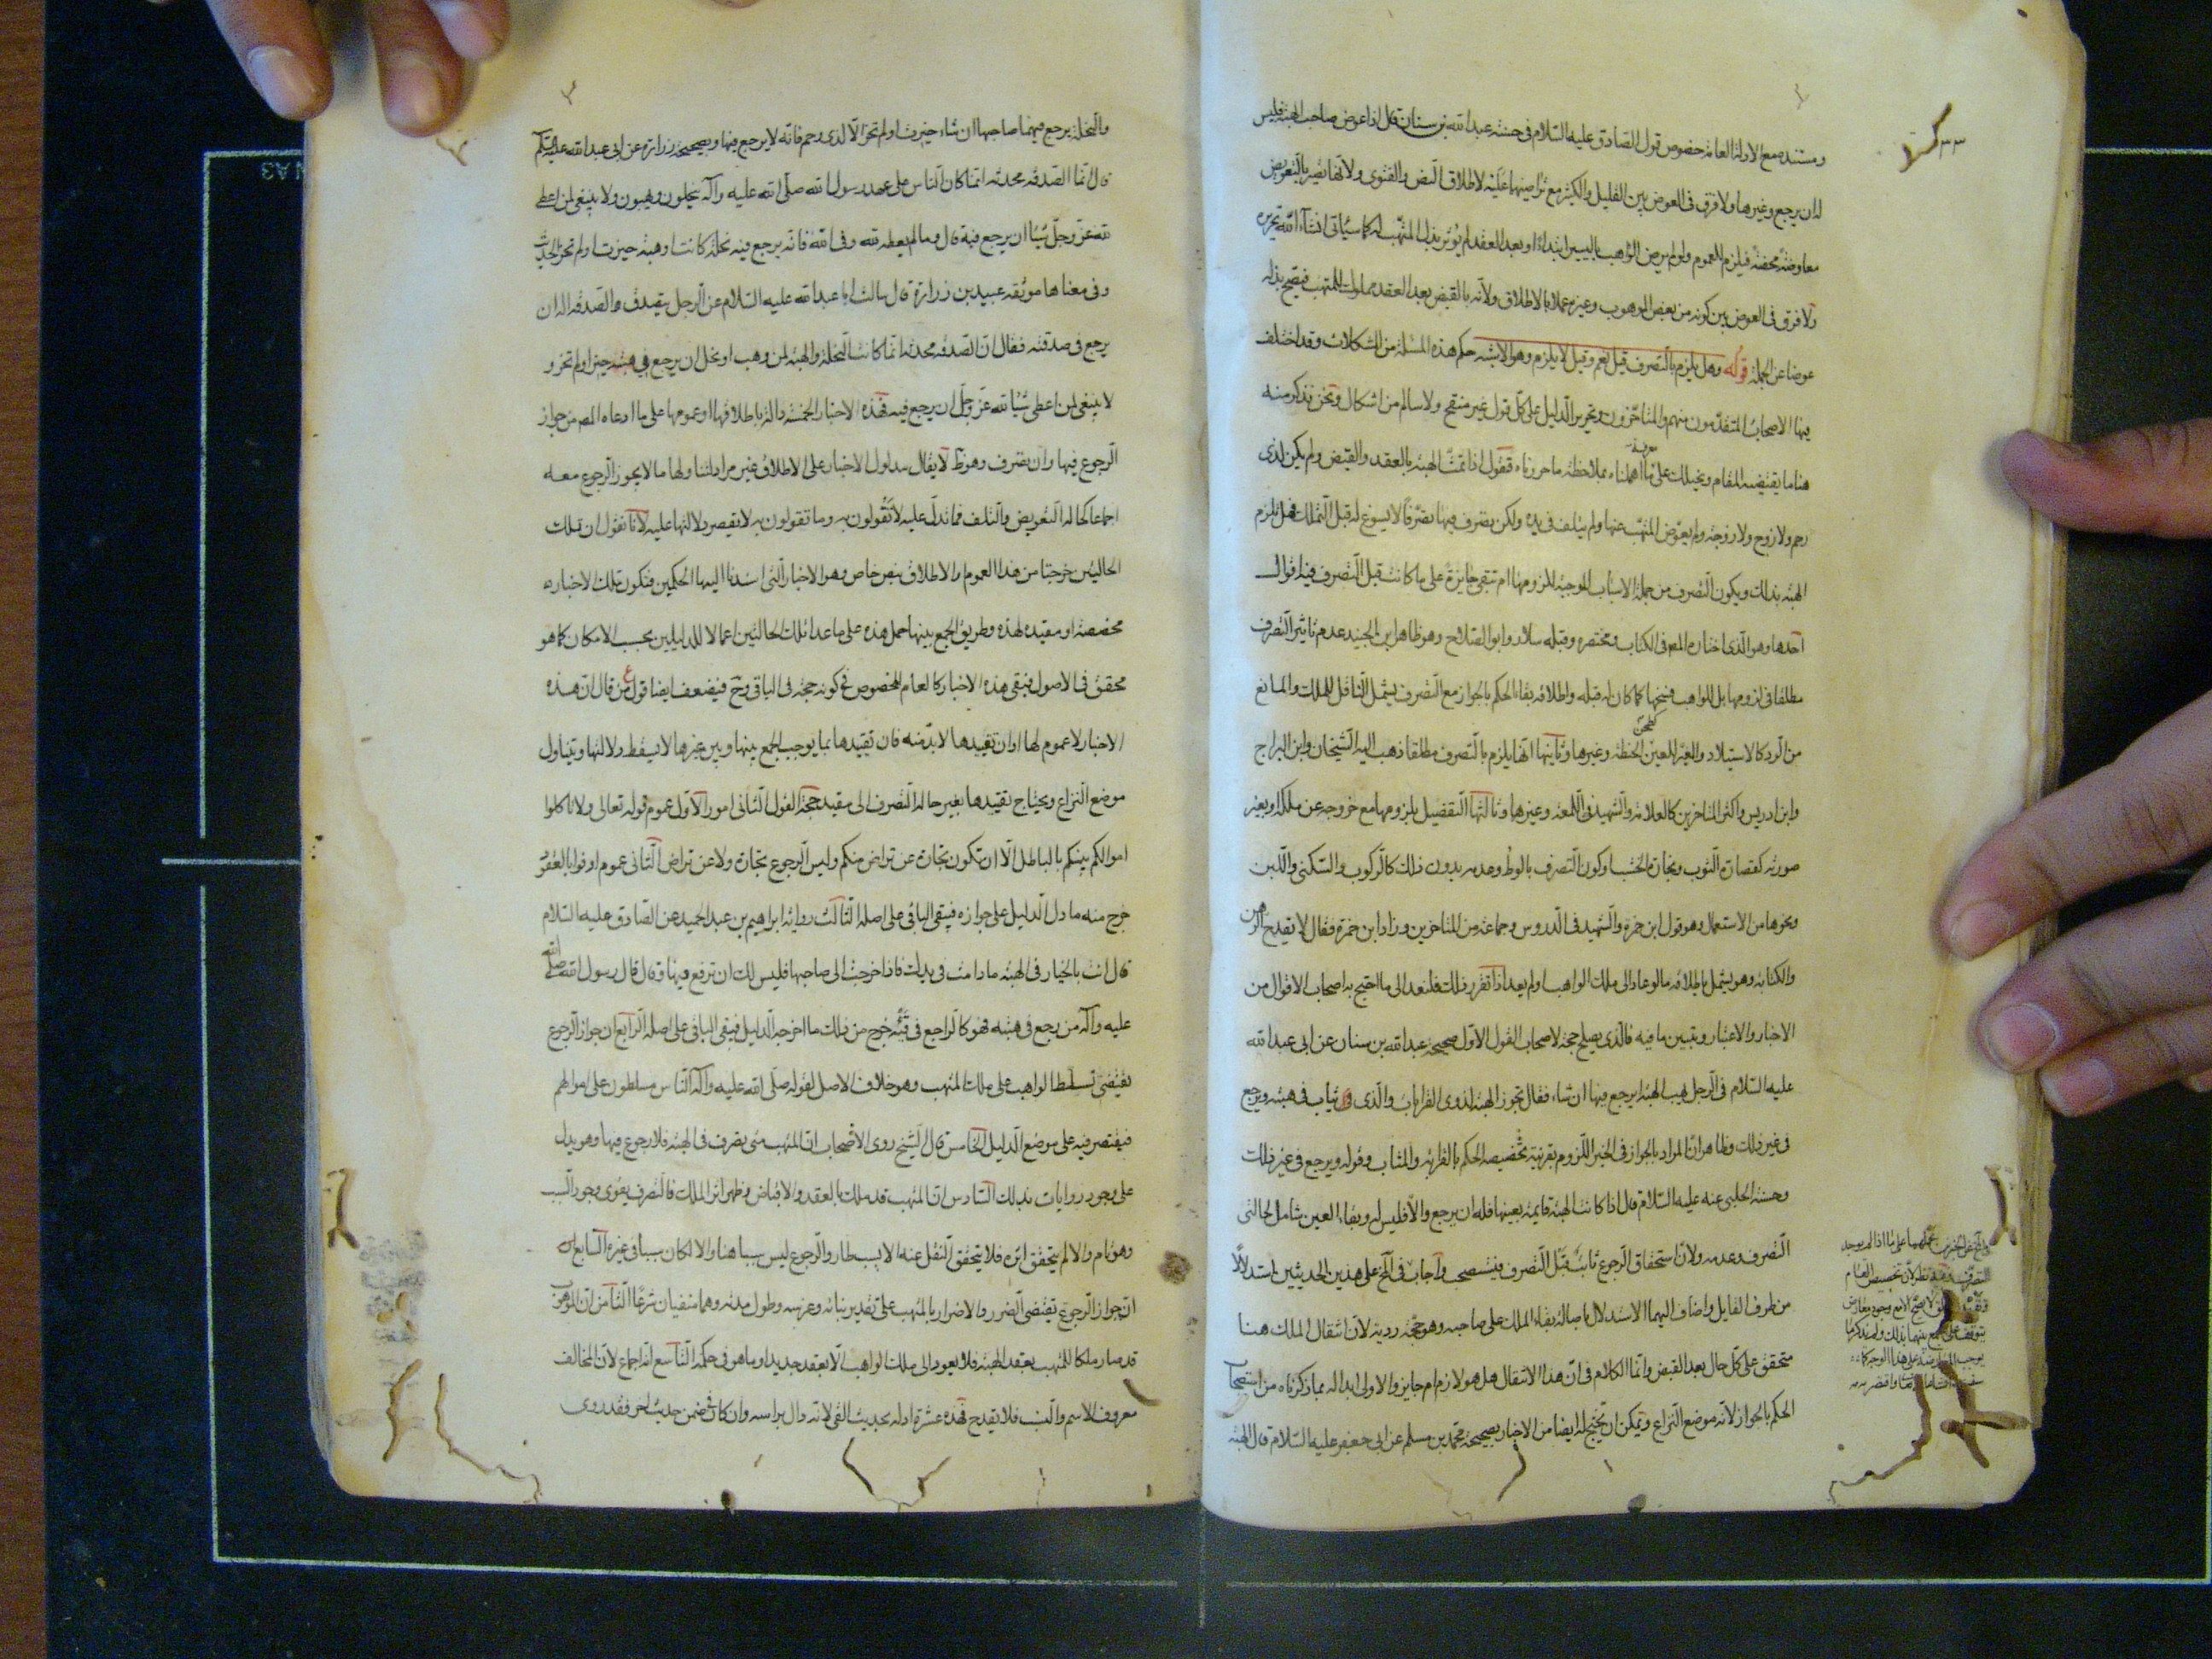 ومستنده مع الادلة العامة خصوص قول الصادق عليه السلام فى حسنة عبد الله بن سنان قال اذا عوض صاحب الهبة فليس
له ان يرجع وغيرها ولا فرق فى العوض بين القليل والكثير مع تراضيهما عليه لاطلاق النص والفتوى ولانها تصير بالتعويض
معاوضة محضة فيلزم للعموم ولو لم يرض الواهب باليسير ابتداء او بعد العقد لم يؤثر بذل المتهب له كما سيأتى انشاء الله تحريره
ولا فرق فى العوض بين كونه من بعض الموهوب وغيره عملا بالاطلاق ولانه بالقبض بعد العقد مملوك للمتهب فيصح بذله
عوضا عن الجملة قوله وهل يلزم بالتصرف قيل نعم وقيل لا يلزم وهو الاشبه حكم هذه المسئلة من المشكلات وقد اختلف
فيها الاصحاب المتقدمون منهم والمتاخرون وتحرير الدليل على كل قول غير منقح ولا سالم من اشكال ونحن نذكر منه
هنا ما يقتضيه المقام ونحيلك على معرفة ما اهملناه بملاحظة ما حررناه فنقول اذا تمت الهبة بالعقد والقبض ولم يكن لذى
رحم ولا زوج ولا زوجة ولم يعوض المتهب عنها ولم يتلف فى يده ولكن تصرف فيها تصرفا لا يسوغ له قبل التملك فهل تلزم
الهبة بذلك ويكون التصرف من جملة الاسباب الموجبة للزومها ام تبقى جايزة على ما كانت قبل التصرف فيه اقوال
احدها وهو الذى اختاره المصه فى الكتاب ومختصره وقبله سلار وابو الصلاح وهو ظاهر ابن الجنيد عدم تأثير التصرف
مطلقا فى لزومها بل للواهب فسخها كما كان له قبله واطلاقه بقاء الحكم بالجواز مع التصرف يشمل الناقل للملك والمانع
من الرد كالاستيلاد والمغير للعين كطحن الحنطة وغيرها وثانيها انها يلزم بالتصرف مطلقا ذهب اليه الشيخان وابن البراج
وابن ادريس واكثر المتاخرين كالعلامة والشهيد فى اللمعة وغيرها وثالثها التفصيل بلزومها مع خروجه عن ملكه او بغير
صورته كقصارة الثوب ونجارة الخشب او كون التصرف بالوطؤ وعدمه بدون ذلك كالركوب والسكنى واللبن
ونحوها من الاستعمال وهو قول ابن حمزة والشهيد فى الدروس وجماعة من المتاخرين وزاد ابن حمزة فقال لا يقدح الرهن
والكتابة وهو يشمل باطلاقه ما لو عاد الى ملك الواهب او لم يعد اذا تقرر ذلك فلنعد الى ما احتج به اصحاب الاقوال من
الاخبار والاعتبار ونبين ما فيه فالذى يصلح حجة لاصحاب القول الاول صحيحة عبد الله بن سنان عن ابى عبد الله
عليه السلام فى الرجل يهب الهبة ايرجع فيها ان شاء فقال تجوز الهبة لذوى القرابات والذى يثاب فى هبته ويرجع
فى غير ذلك وظاهر ان المراد بالجواز فى الخبر اللزوم بقرينة تخصيصه الحكم بالقرابة والمثاب وقوله ويرجع فى غير ذلك
وحسنة الحلبى عنه عليه السلام قال اذا كانت الهبة قايمة بعينها فله ان يرجع والا فليس له وبقاء العين شامل لحالتى
التصرف وعدمه ولان استحقاق الرجوع ثابت قبل التصرف فيستصحب واجاب فى لخ على هذين الحديثين استدلالا
من طرف القايل واضاف اليهما الاستدلال باصالة بقاء الملك على صاحبه وهو حجة ردية لان انتقال الملك هنا
متحقق على كل حال بعد القبض وانما الكلام فى ان هذا الانتقال هل هو لازم ام جايز والاولى ابداله بما ذكرناه من استصحاب
الحكم بالجواز لانه موضع النزاع ويمكن ان يحتج له ايضا من الاخبار بصحيحة محمد بن مسلم عن ابى جعفر عليه السلام قال الهبة
والنحلة يرجع فيهما صاحبها ان شاء حيزت او لم تحز الا لذى رحم فانه لا يرجع فيها وبصحيحة زرارة عن ابى عبد الله عليه السلم
قال انما الصدقة محدثة انما كان الناس على عهد رسول الله صلى الله عليه وآله ينحلون ويهبون ولا ينبغى لمن اعطى
لله عز وجل شيئا ان يرجع فيه قال وما لم يعطه لله وفى الله فانه يرجع فيه نحلة كانت او هبة حيزت او لم تحز الحديث
وفى معناها موثقة عبيد بن زرارة قال سالت ابا عبد الله عليه السلام عن الرجل يتصدق بالصدقة اله ان
يرجع فى صدقته فقال ان الصدقة محدثة انما كانت النحلة والهبة لمن وهب او نحل ان يرجع فى هبته حيز او لم تحز و
لا ينبغى لمن اعطى شيئا لله عز وجل ان يرجع فيه فهذه الاخبار الخمسة دالة باطلاقها او عمومها على ما ادعاه المصه من جواز
الرجوع فيها وان تصرف وهو ظ لا يقال مدلول الاخبار على الاطلاق غير مراد لتناولها ما لا يجوز الرجوع معه
اجماعا كحالة التعويض والتلف فما تدل عليه لا تقولون به وما تقولون به لا يقصر دلالتها عليه لانا نقول ان تلك
الحالتين خرجتا من هذا العموم او الاطلاق بنص خاص وهو الاخبار التى اسندنا اليها الحكمين فتكون تلك الاخبار
مخصصة او مقيدة لهذه وطريق الجمع بينها حمل هذه على ما عدا تلك الحالتين اعمالا للدليلين بحسب الامكان كما هو
محقق فى الاصول فتبقى هذه الاخبار كالعام المخصوص فى كونه حجة فى الباقى وح فيضعف ايضا قول من قال ان هذه
الاخبار لا عموم لها او ان تقييدها لابد منه فان تقييدها بما يوجب الجمع بينها وبين غيرها لا يسقط دلالتها ويتناول
موضع النزاع ويحتاج تقييدها بغير حالة التصرف الى مقيد حجة القول الثانى امور الاول عموم قوله تعالى ولا تاكلوا
اموالكم بينكم بالباطل الا ان تكون تجارة عن تراض منكم وليس الرجوع تجارة ولا عن تراض الثانى عموم اوفوا بالعقود
خرج منه ما دل الدليل على جوازه فيبقى الباقى على اصله الثالث رواية ابراهيم بن عبد الحميد عن الصادق عليه السلام
قال انت بالخيار فى الهبة ما دامت فى يدك فاذا خرجت الى صاحبها فليس لك ان ترجع فيها وقال قال رسول الله صلى الله
عليه وآله من رجع فى هبته فهو كالراجع فى قيئه خرج من ذلك ما اخرجه الدليل فيبقى الباقى على اصله الرابع ان جواز الرجوع
يقتضى تسلط الواهب على ملك المتهب وهو خلاف الاصل لقوله صلى الله عليه وآله الناس مسلطون على اموالهم
فيقتصر فيه على موضع الدليل الخامس قال الشيخ روى الاصحاب ان المتهب متى تصرف فى الهبة فلا رجوع فيها وهو يدل
على وجود روايات بذلك السادس ان المتهب قد ملك بالعقد والاقباض وظهر اثر الملك فالتصرف يقوى وجود السبب
وهو تام والا لم يتحقق اثره فلا يتحقق النقل عنه الا بسبب طار والرجوع ليس سببا هنا والا لكان سببا فى غيره السابع ان
ان جواز الرجوع تقتضى الضرر والاضرار بالمتهب على تقدير بنائه وغرسه وطول مدته وهما منفيان شرعا الثامن ان الموهوب
قد صار ملكا للمتهب بعقد الهبة فلا يعود الى ملك الواهب الا بعقد جديد او ما هو فى حكمه التاسع انه اجماع لان المخالف
معروف الاسم والنسب فلا يقدح فهذه عشرة ادلة بحديث القى لانه دال براسه وان كان فى ضمن حديث اخر فقد روى